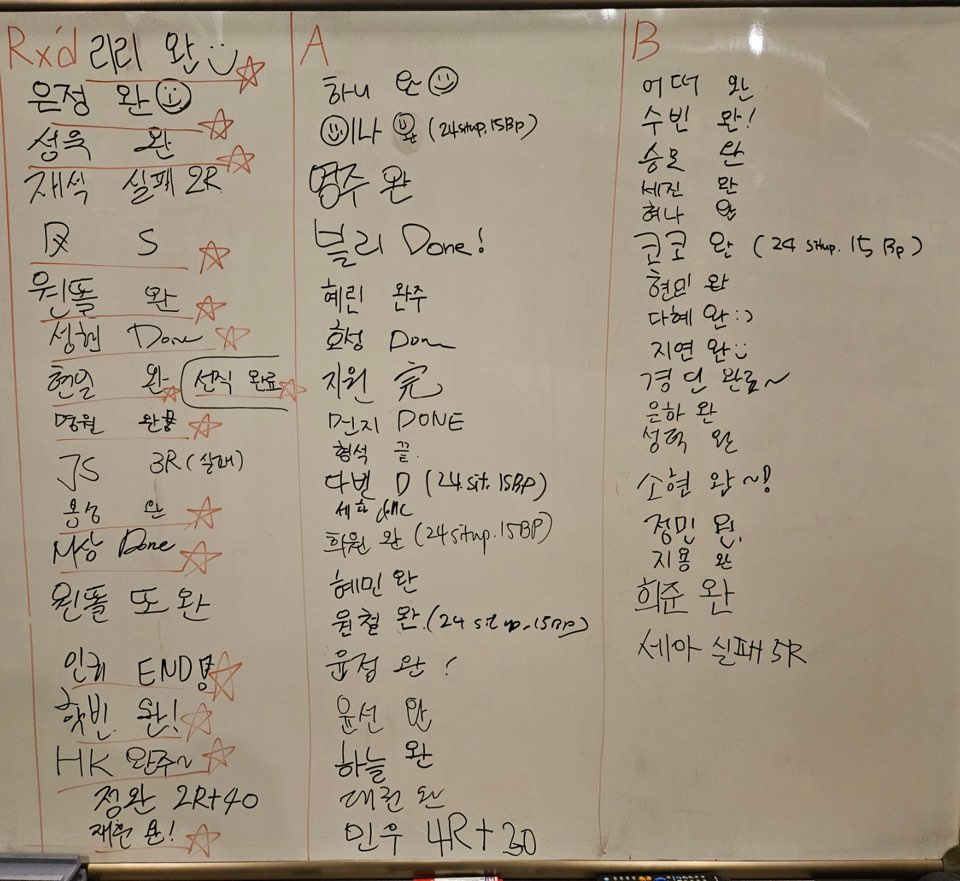 Rx'd
리리 완
은정 완
성욱 완
재석 실패 2R
Rx S
원똘 완
성현 Done
현일 완
선직 완료
명원 완
JS 3R (실패)
용상 완
M상 Done
원똘 또 완
인귀 END
학빈. 완!
HK 완주~
정완 2R+40
재훈 완!
A
하니 완
이나 완 (24 situp. 15Bp)
명주 완
블리 Done!
혜린 완주
호성 Done
지원 完
먼지 DONE
형석 끝.
다빈 D (24. sit. 15BP)
세화 done
희원 완 (24 situp. 15BP)
혜민 완
원철 완. (24 sit up. 15BP)
윤정 완!
윤선 완
하늘 완
대권 완
민우 4R+30
B
어떠 완
수빈 완!
승모 완
세진 완
혀나 완
코코 완 (24 situp. 15 Bp)
현민 완
다혜 완:)
지연 완
경딘 완료~
은하 완
성혁 완
소현 완~!
정민 완.
지용 완
희준 완
세아 실패 5R